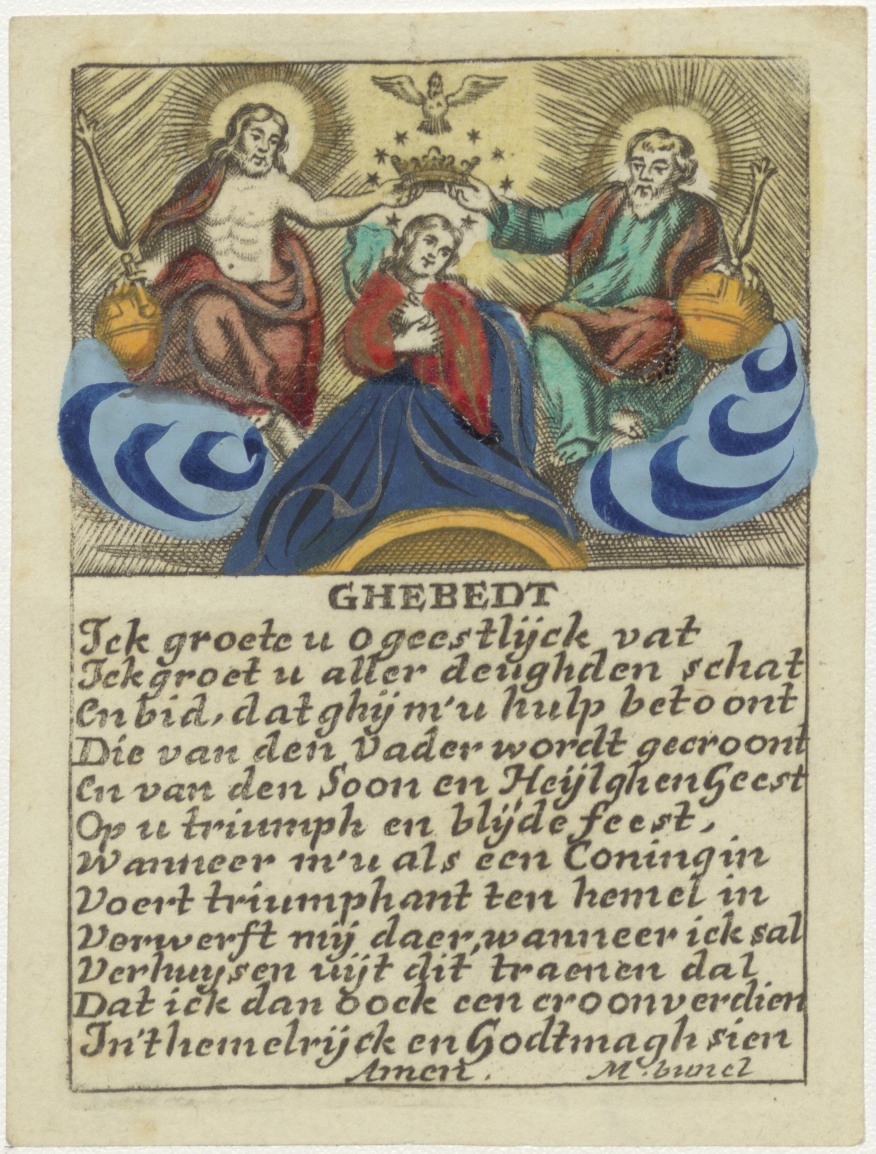 GHEBEDT
Ick groete u o geestlijck vat
Ick groet u aller deughden schat
En bid, dat ghij m'u hulp betoont
Die van den Vader wordt gecroont
En van den Soon en Heijlghen Geest
Op u triumph en blijde feest,
Wanneer m'u als een Coningin
Voert triumphant ten hemel in
Verwerft mij daer, wanneer ick sal
Verhuysen uijt dit traenen dal
Dat ick dan oock een croon verdien
In't hemelrijck en Godt magh sien
Amen. M. bunel